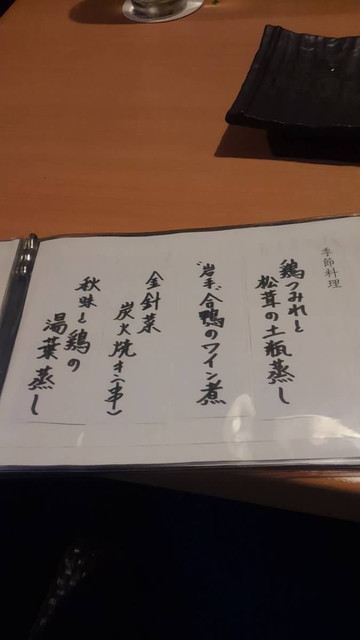 季節料理
鶏つみれと
松茸の土瓶蒸し
"岩手"合鴨のワイン煮
金針菜
炭火焼き(串)
秋味と鶏の
湯葉蒸し